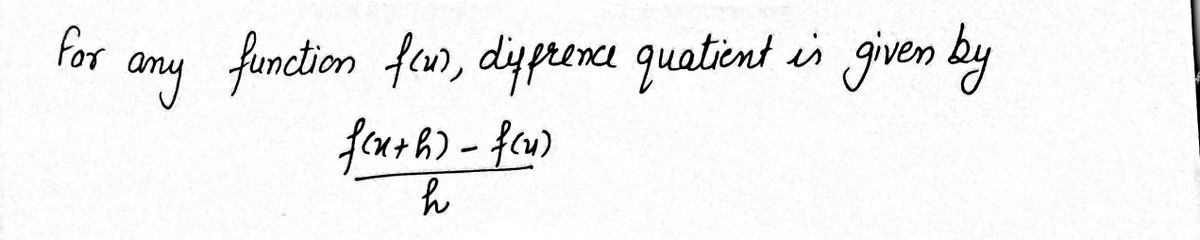 For any function f(x), diffrence quatient is given by
f(x+h) - f(x)
h